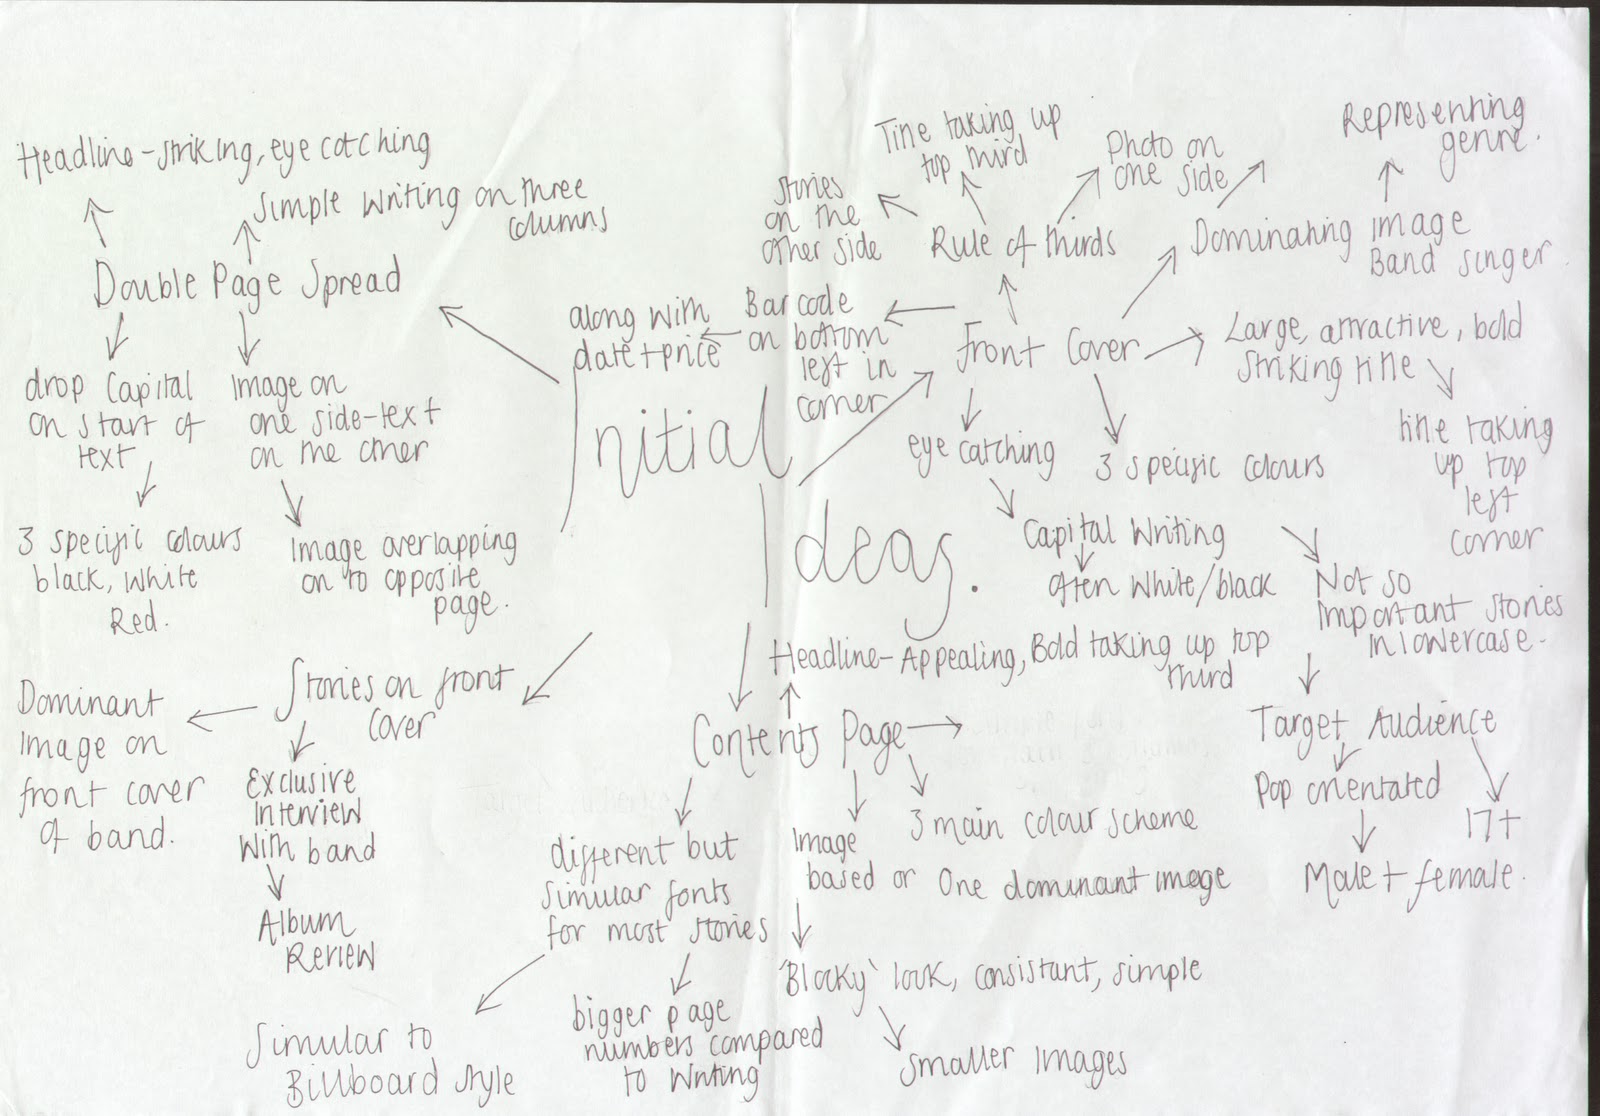 Headline - striking, eye catching
Simple Writing on three
columns
Double Page Spread
drop Capital
on start of
text
3 specific colours
black, white
Red.
Image on
one side - text
on the other
Image overlapping
on to opposite
page.
Initial
Ideas.
Title taking up
top third
Photo on
one side
Stories
on the
other side
Rule of thirds
Representing
genre.
Dominating image
Band singer
along with
date + price
Barcode
on bottom
left in
corner
Front Cover
Large, attractive, bold
striking title
title taking
up top
left
corner
eye catching
3 specific colours
Capital Writing
often White/black
Not so
important stories
in lowercase.
Target Audience
Pop orientated
17+
Male + female.
Headline - Appealing, Bold taking up top
third
Contents Page
3 main colour scheme
Image
based or One dominant image
'Blocky' look, consistant, simple
Smaller Images
different but
simular fonts
for most stories
bigger page
numbers compared
to Writing
Simular to
Billboard style
Stories on front
cover
Dominant
image on
front cover
of band.
Exclusive
Interview
With band
Album
Review